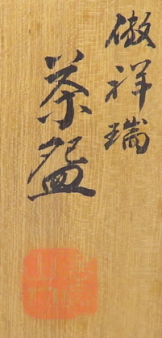 倣祥瑞
茶盌